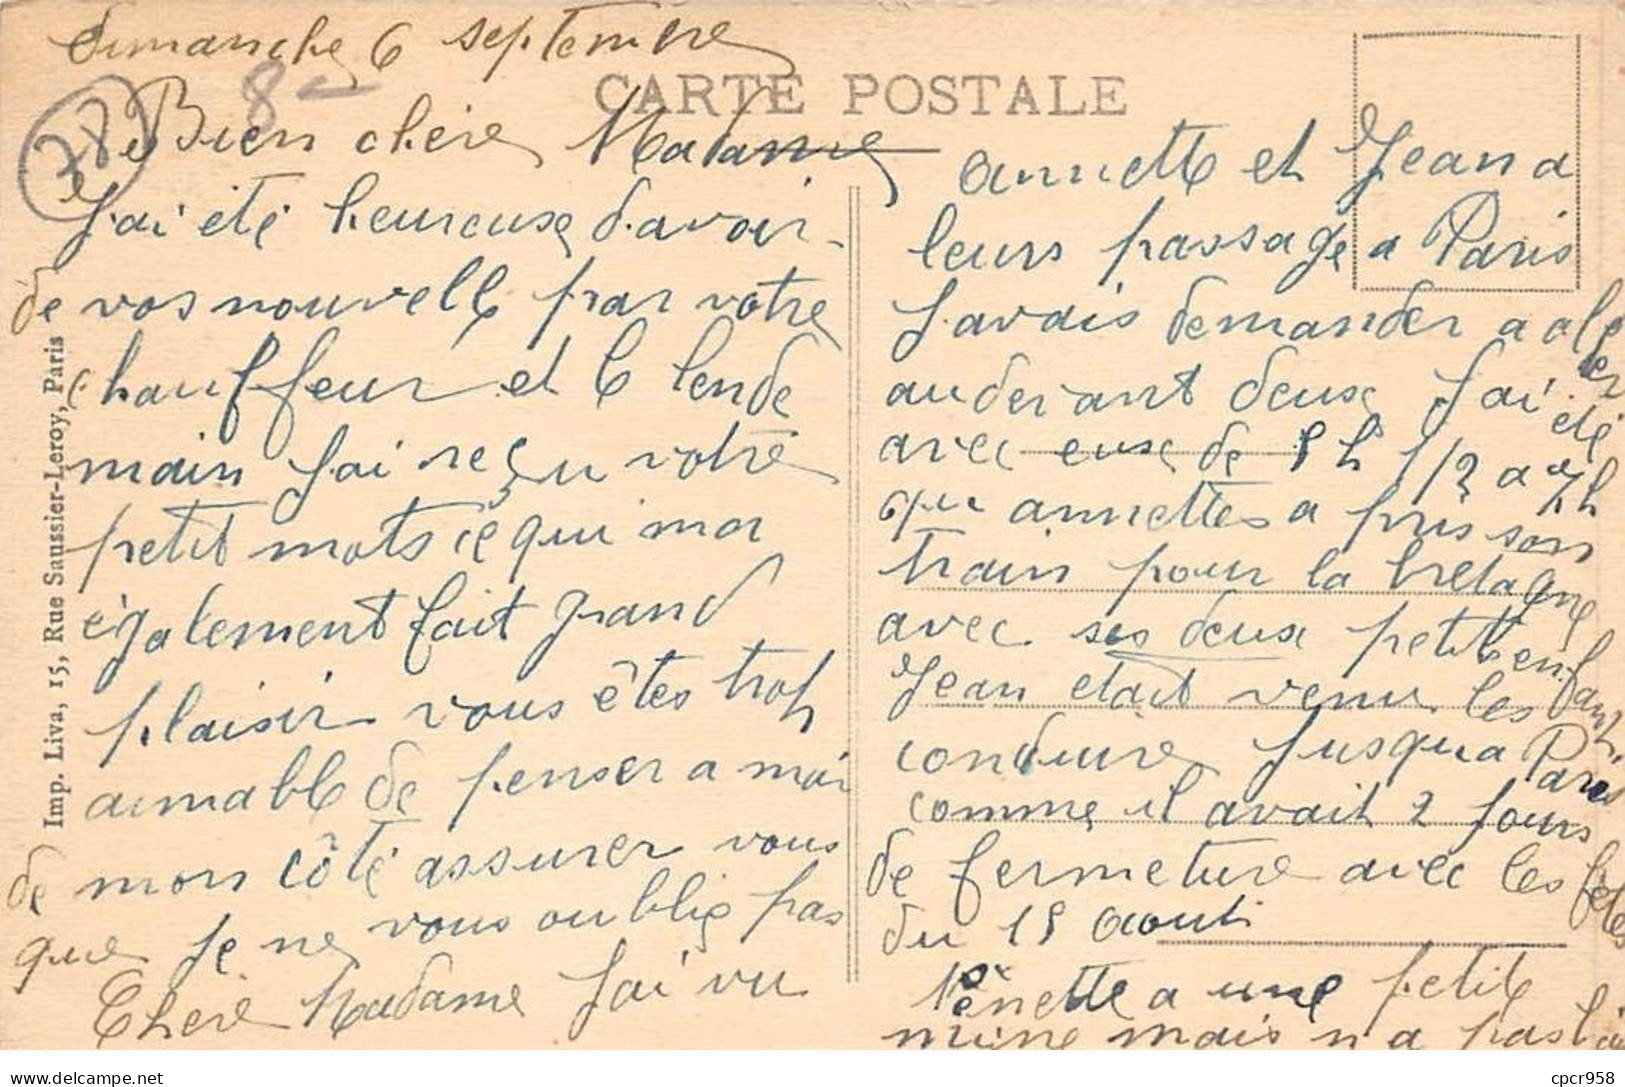 Dimanche 6 septembre
8-
CARTE POSTALE
78
Bien chère Madame
J'ai été heureuse d'avoir
de vos nouvelle par votre
chauffeur et le lende
main j'ai reçu votre
petit mots ce qui ma
également fait grand
plaisir vous êtes trop
aimable de penser a moi
de mon côté assurer vous
que je ne vous oublie pas
Chère Madame j'ai vu
Imp. Liva, 15, Rue Saussier-Leroy, Paris
annette et Jean a
leurs passage a Paris
J'avais demander a aller
audevant deux j'ai été
avec euse de 5h 1/2 a 7h
qu annettes a pris son
train pour la bretagne
avec ses deux petits enfants
Jean etait venu les
conduire jusqua Paris
comme il avait 2 jours
de fermeture avec les fêtes
du 15 aout
Penette a une petit
mine mais n a pas
delcampe.net
cpcr958